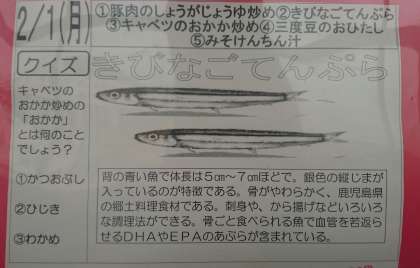 2/1(月)
①豚肉のしょうがじょうゆ炒め②きびなごてんぷら
③キャベツのおかか炒め④三度豆のおひたし
⑤みそけんちん汁
クイズ
きびなごてんぷら
キャベツの
おかか炒めの
「おかか」
とは何のこと
でしょう?
①かつおぶし
②ひじき
③わかめ
背の青い魚で体長は5㎝～7㎝ほどで。銀色の縦じまが
入っているのが特徴である。骨がやわらかく、鹿児島県
の郷土料理食材である。刺身や、から揚げなどいろいろ
な調理法ができる。骨ごと食べられる魚で血管を若返ら
せるDHAやEPAのあぶらが含まれている。